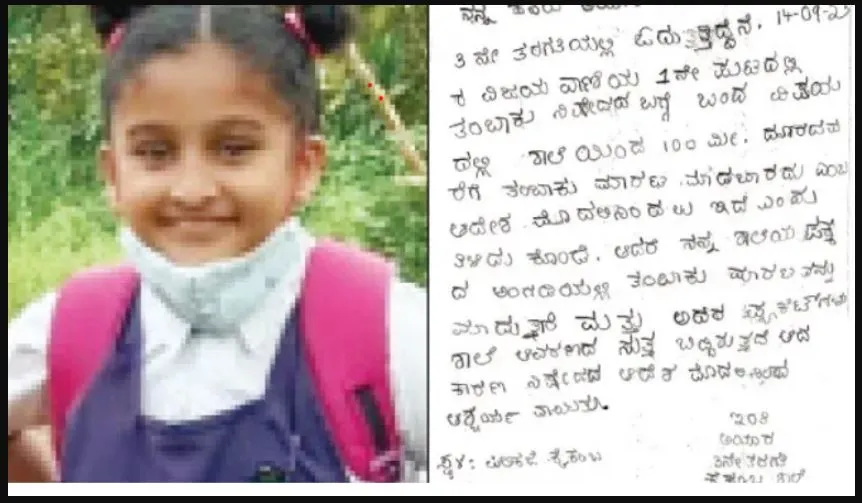 ನನ್ನ ಹೆಸರು
೩ ನೇ ತರಗತಿಯಲ್ಲಿ ಓದುತ್ತಿದ್ದೇನೆ. 14-09-
ರ ವಿಜಯ ವಾಣಿಯ 1ನೇ ಪುಟದಲ್ಲಿ
ತಂಬಾಕು ನಿಷೇಧದ ಬಗ್ಗೆ ಬಂದ ವಿಷಯ
ದಲ್ಲಿ ಶಾಲೆಯಿಂದ 100 ಮೀ. ದೂರದವ
ರೆಗೆ ತಂಬಾಕು ಮಾರಾಟ ಮಾಡಬಾರದು ಎಂಬ
ಆದೇಶ ಮೊದಲಿನಿಂದಲು ಇದೆ ಎಂದು
ತಿಳಿದು ಕೊಂಡೆ. ಆದರೆ ನನ್ನ ಶಾಲೆಯ ಹತ್ತಿ
ರದ ಅಂಗಡಿಯಲ್ಲಿ ತಂಬಾಕು ಮಾರಾಟವನ್ನು
ಮಾಡುತ್ತಾರೆ ಮತ್ತು ಅದರ ಪ್ಯಾಕೆಟ್‌ಗಳು
ಶಾಲೆ ಆವರಣದ ಸುತ್ತ ಬಿದ್ದಿರುತ್ತದೆ ಆದ
ಕಾರಣ ನಿಷೇಧದ ಆದೇಶ
ಆಶ್ಚರ್ಯ ವಾಯಿತು.
ಇಂತಿ
ಸ್ಥಳ: ಕೈಕಂಬ
೩ನೇ ತರಗತಿ
ಕೈಕಂಬ ಶಾಲೆ